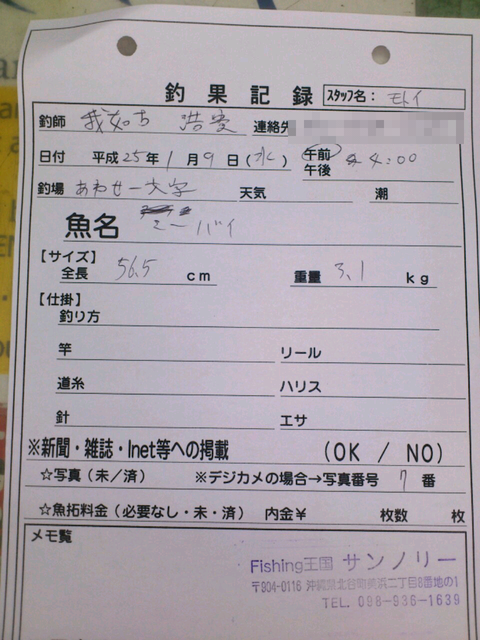 釣果記録 スタッフ名：モトイ
釣師 我如古 連絡先
日付 平成25年1月9日(水) 午前 4:00
午後
釣場 あわせ一文字 天気 潮
魚名 ミーバイ
【サイズ】
全長 56.5 cm 重量 3.1 kg
【仕掛】
釣り方
竿 リール
道糸 ハリス
針 エサ
※新聞・雑誌・Inet等への掲載 (OK / NO)
☆写真（未／済） ※デジカメの場合→写真番号 7 番
☆魚拓料金（必要なし・未・済） 内金￥ 枚数 枚
メモ覧
Fishing王国 サンノリー
〒904-0116 沖縄県北谷町美浜二丁目8番地の1
TEL. 098-936-1639